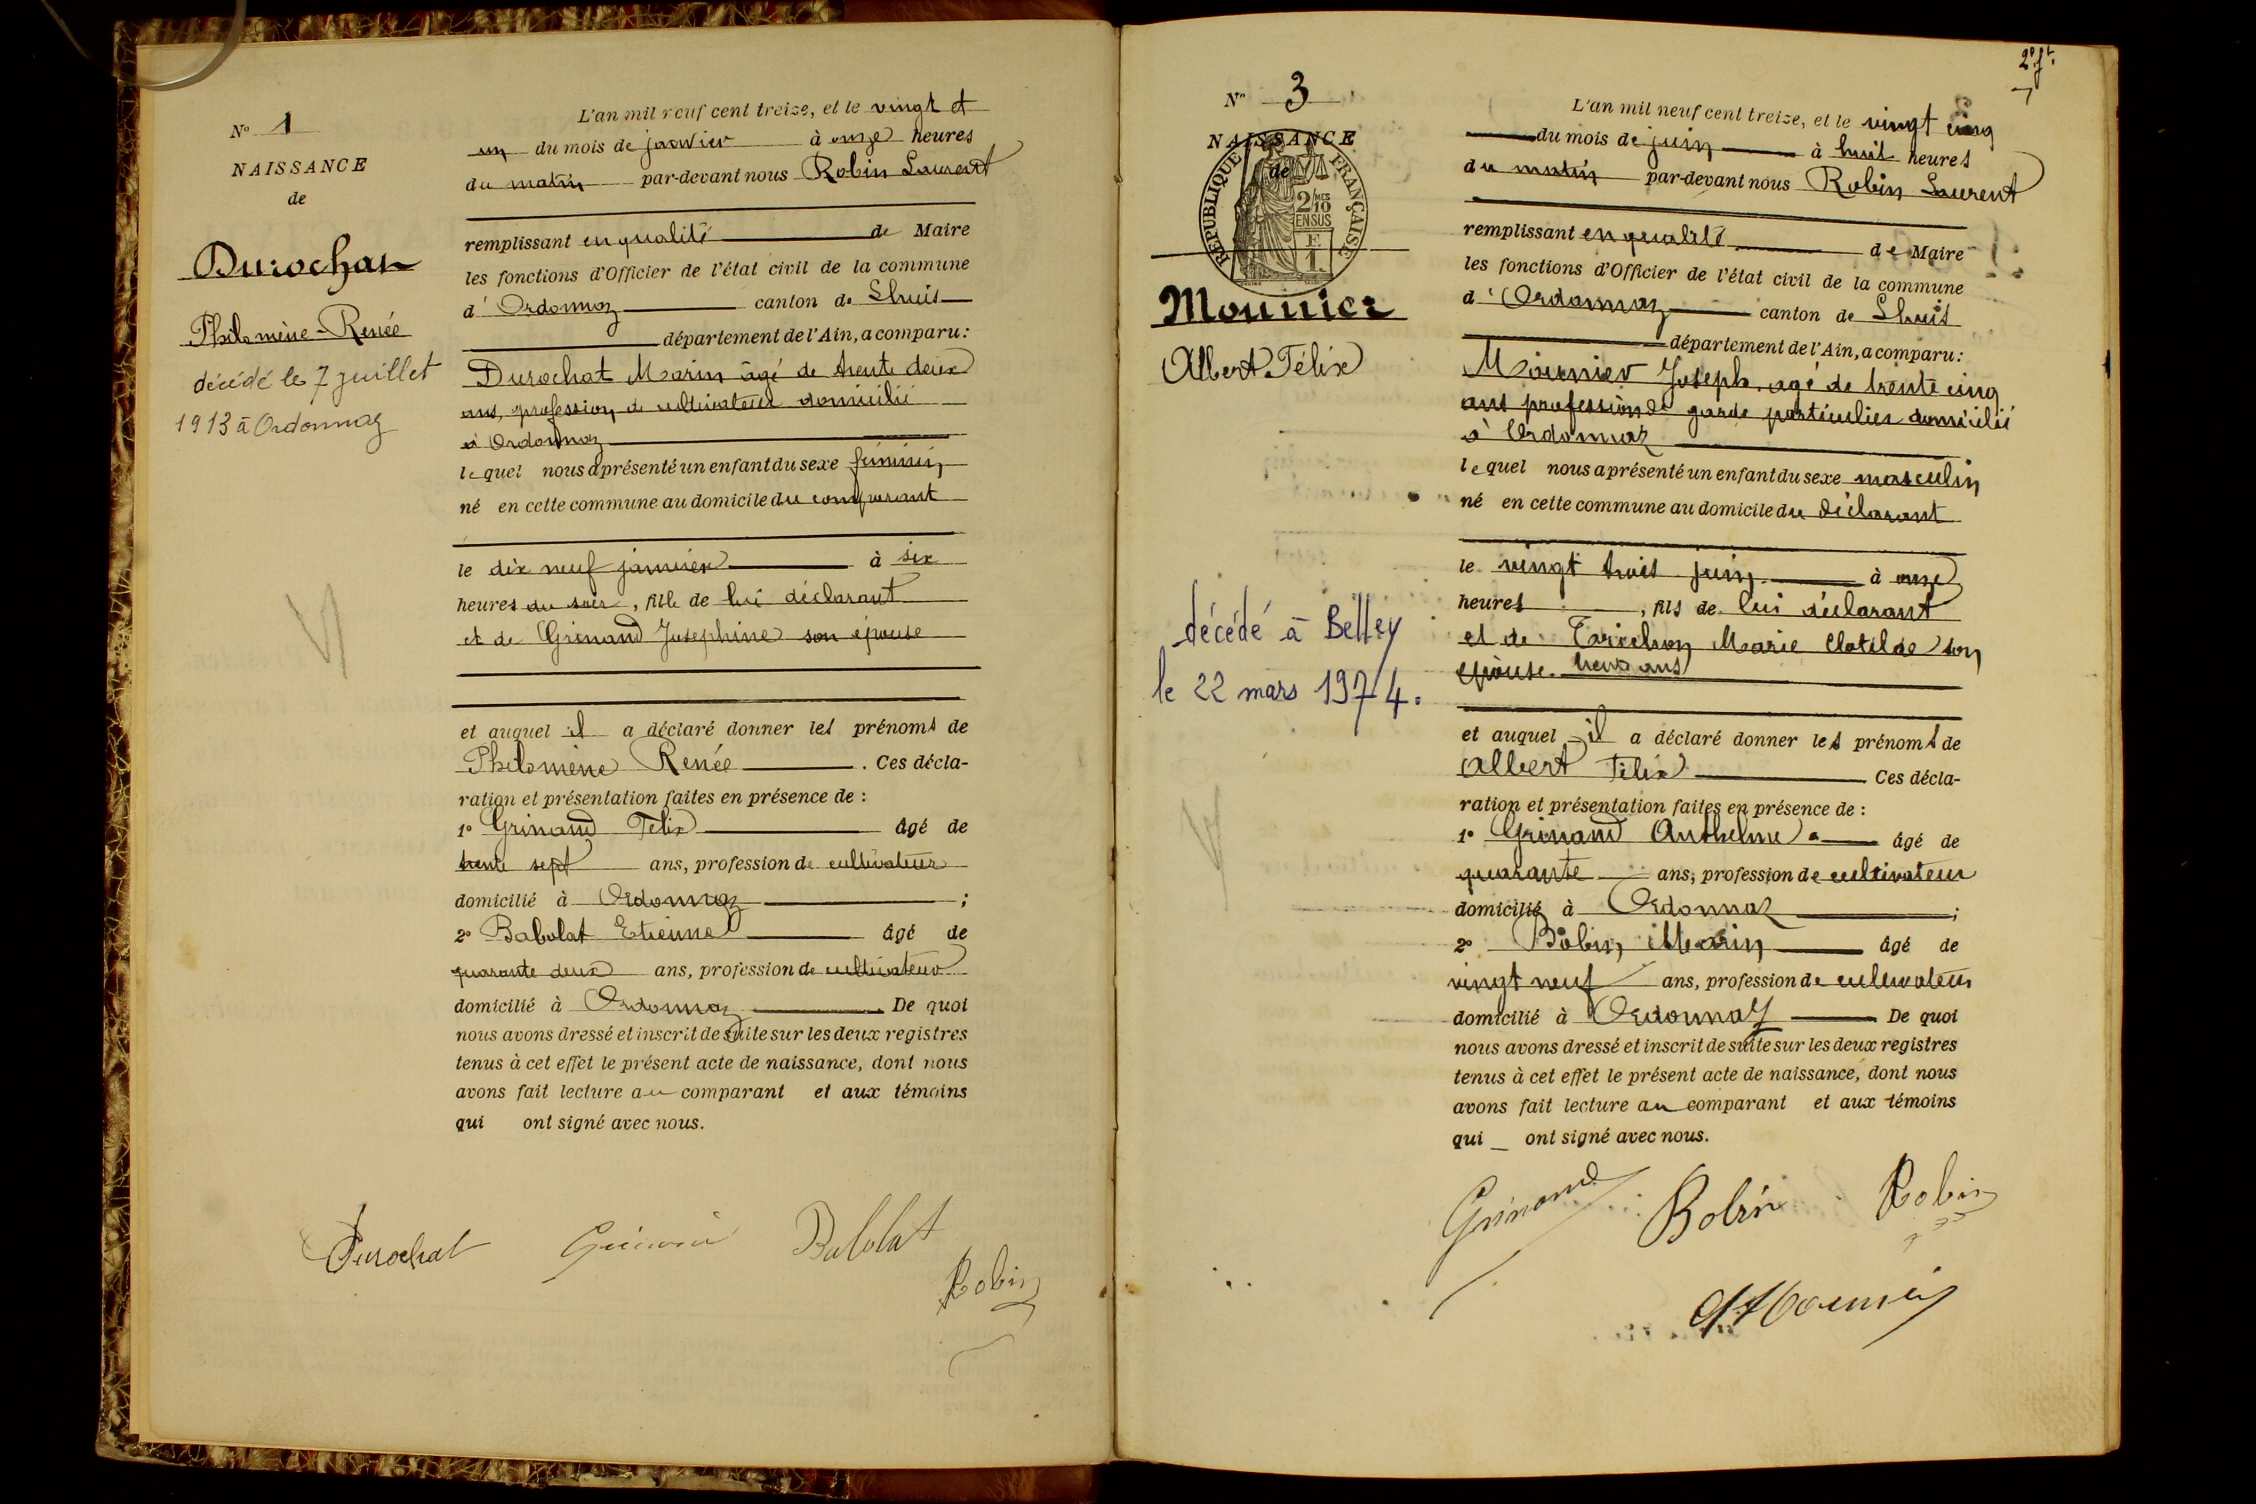 N° 1
NAISSANCE
de
Durochat
Philomène-Renée
décédé le 7 juillet
1913 à Ordonnaz
L'an mil neuf cent treize, et le vingt et
un du mois de janvier à onze heures
du matin par-devant nous Robin Laurent
remplissant en qualité de Maire
les fonctions d'Officier de l'état civil de la commune
d'Ordonnaz canton de Lhuis
département de l'Ain, a comparu:
Durochat Marin âgé de trente deux
ans, profession de cultivateur domicilié
à Ordonnaz
lequel nous a présenté un enfant du sexe féminin,
né en cette commune au domicile du comparant
le dix neuf janvier à six
heures du soir, fille de lui déclarant
et de Grinand Josephine son épouse
et auquel il a déclaré donner les prénoms de
Philomène Renée. Ces décla-
ration et présentation faites en présence de :
1° Grinand Félix âgé de
trente sept ans, profession de cultivateur
domicilié à Ordonnaz ;
2° Babolat Etienne âgé de
quarante deux ans, profession de cultivateur
domicilié à Ordonnaz. De quoi
nous avons dressé et inscrit de suite sur les deux registres
tenus à cet effet le présent acte de naissance, dont nous
avons fait lecture au comparant et aux témoins
qui ont signé avec nous.
Durochat Grinand Babolat
Robin
2e ft.
N° 3
NAISSANCE
de
RÉPUBLIQUE FRANÇAISE
2/10MES
EN SUS
F
1
Mounier
Albert Félix
décédé à Belley
le 22 mars 1974.
L'an mil neuf cent treize, et le vingt cinq
du mois de juin à huit heures
du matin par-devant nous Robin Laurent
remplissant en qualité de Maire
les fonctions d'Officier de l'état civil de la commune
d'Ordonnaz canton de Lhuis
département de l'Ain, a comparu:
Mounier Joseph âgé de trente cinq
ans profession de garde particulier domicilié
à Ordonnaz
lequel nous a présenté un enfant du sexe masculin
né en cette commune au domicile du déclarant
le vingt trois juin à onze
heures, fils de lui déclarant
et de Marie Clotilde son
épouse ans
et auquel il a déclaré donner les prénoms de
Albert Félix Ces décla-
ration et présentation faites en présence de :
1° Grinand Anthelme âgé de
quarante ans, profession de cultivateur
domicilié à Ordonnaz ;
2° Robin Marin âgé de
vingt neuf ans, profession de cultivateur
domicilié à Ordonnaz De quoi
nous avons dressé et inscrit de suite sur les deux registres
tenus à cet effet le présent acte de naissance, dont nous
avons fait lecture au comparant et aux témoins
qui ont signé avec nous.
Grinand Robin Robin
Mounier